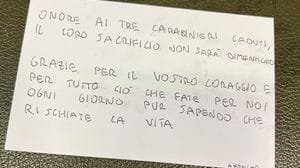 ONORE AI TRE CARABINIERI CADUTI,
IL LORO SACRIFICIO NON SARÀ DIMENTICATO
GRAZIE PER IL VOSTRO CORAGGIO E
PER TUTTO CIÒ CHE FATE PER NOI
OGNI GIORNO PUR SAPENDO CHE
RISCHIATE LA VITA